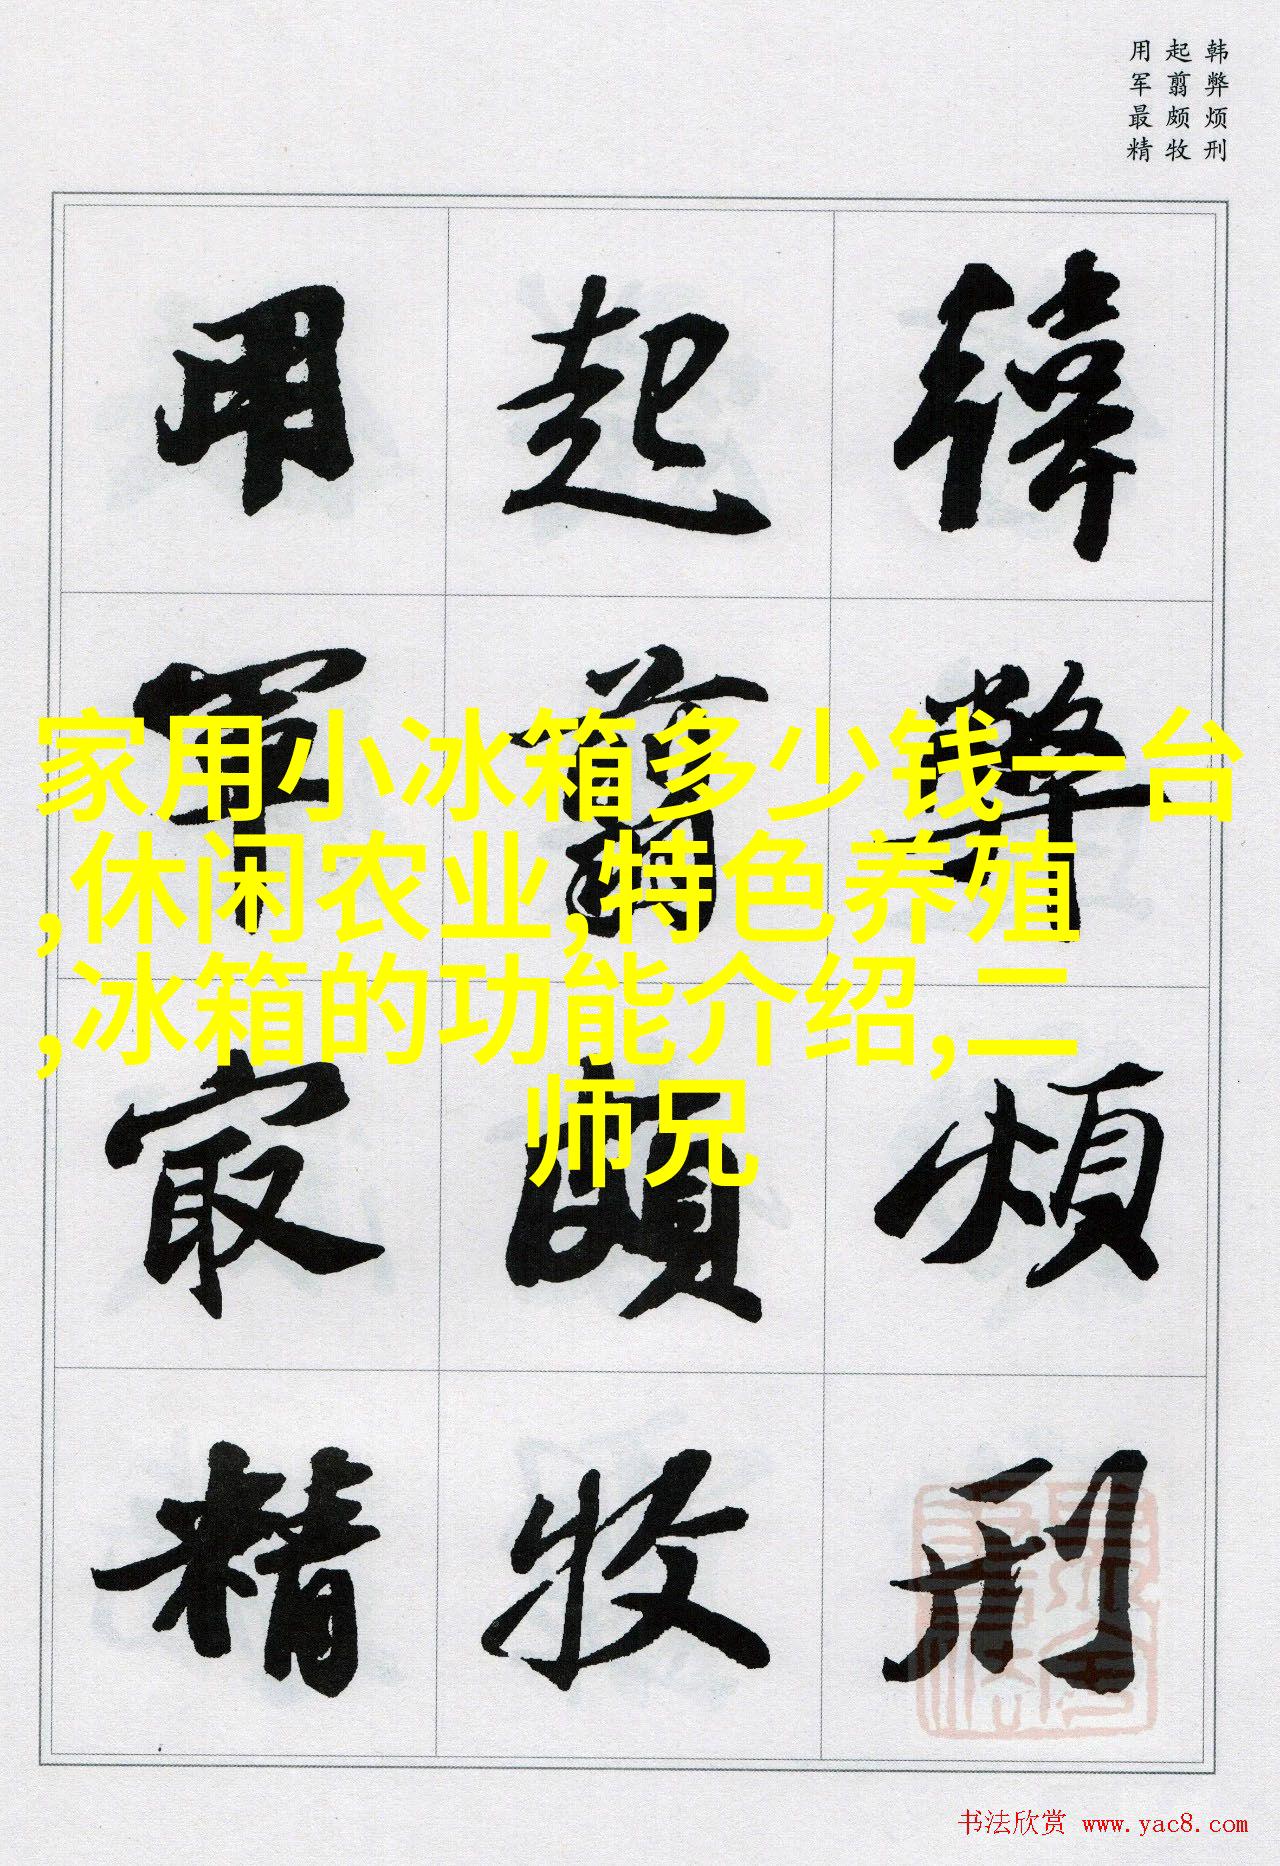 韩弊烦刑
起翦颇牧
用军最精
韩弊烦刑
起翦颇牧
用军最精
家用小冰箱多少钱一台
,休闲农业,特色养殖
,冰箱的功能介绍,二
师兄
书法欣赏 www.yac8.com